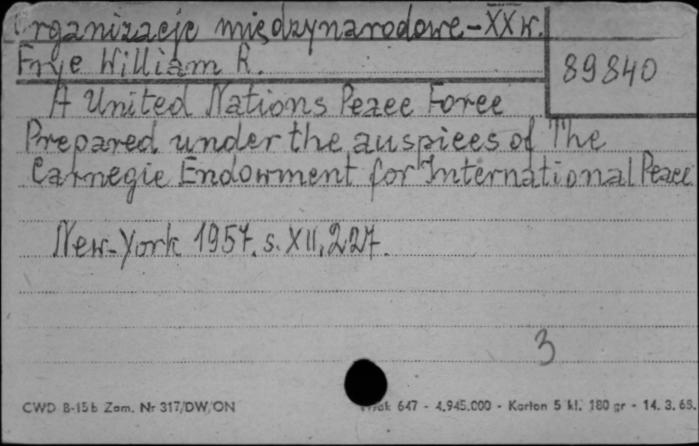 Organizacje międzynarodowe - XX w.
Frye William R.
89840
A United Nations Peace Force
Prepared under the auspices of The
Carnegie Endowment for International Peace
New-York 1957. s. XII, 227.
3
CWD B-15b Zam. Nr 317/DW/ON
647 - 4.945.000 - Karton 5 kl. 180 gr - 14. 3. 65.